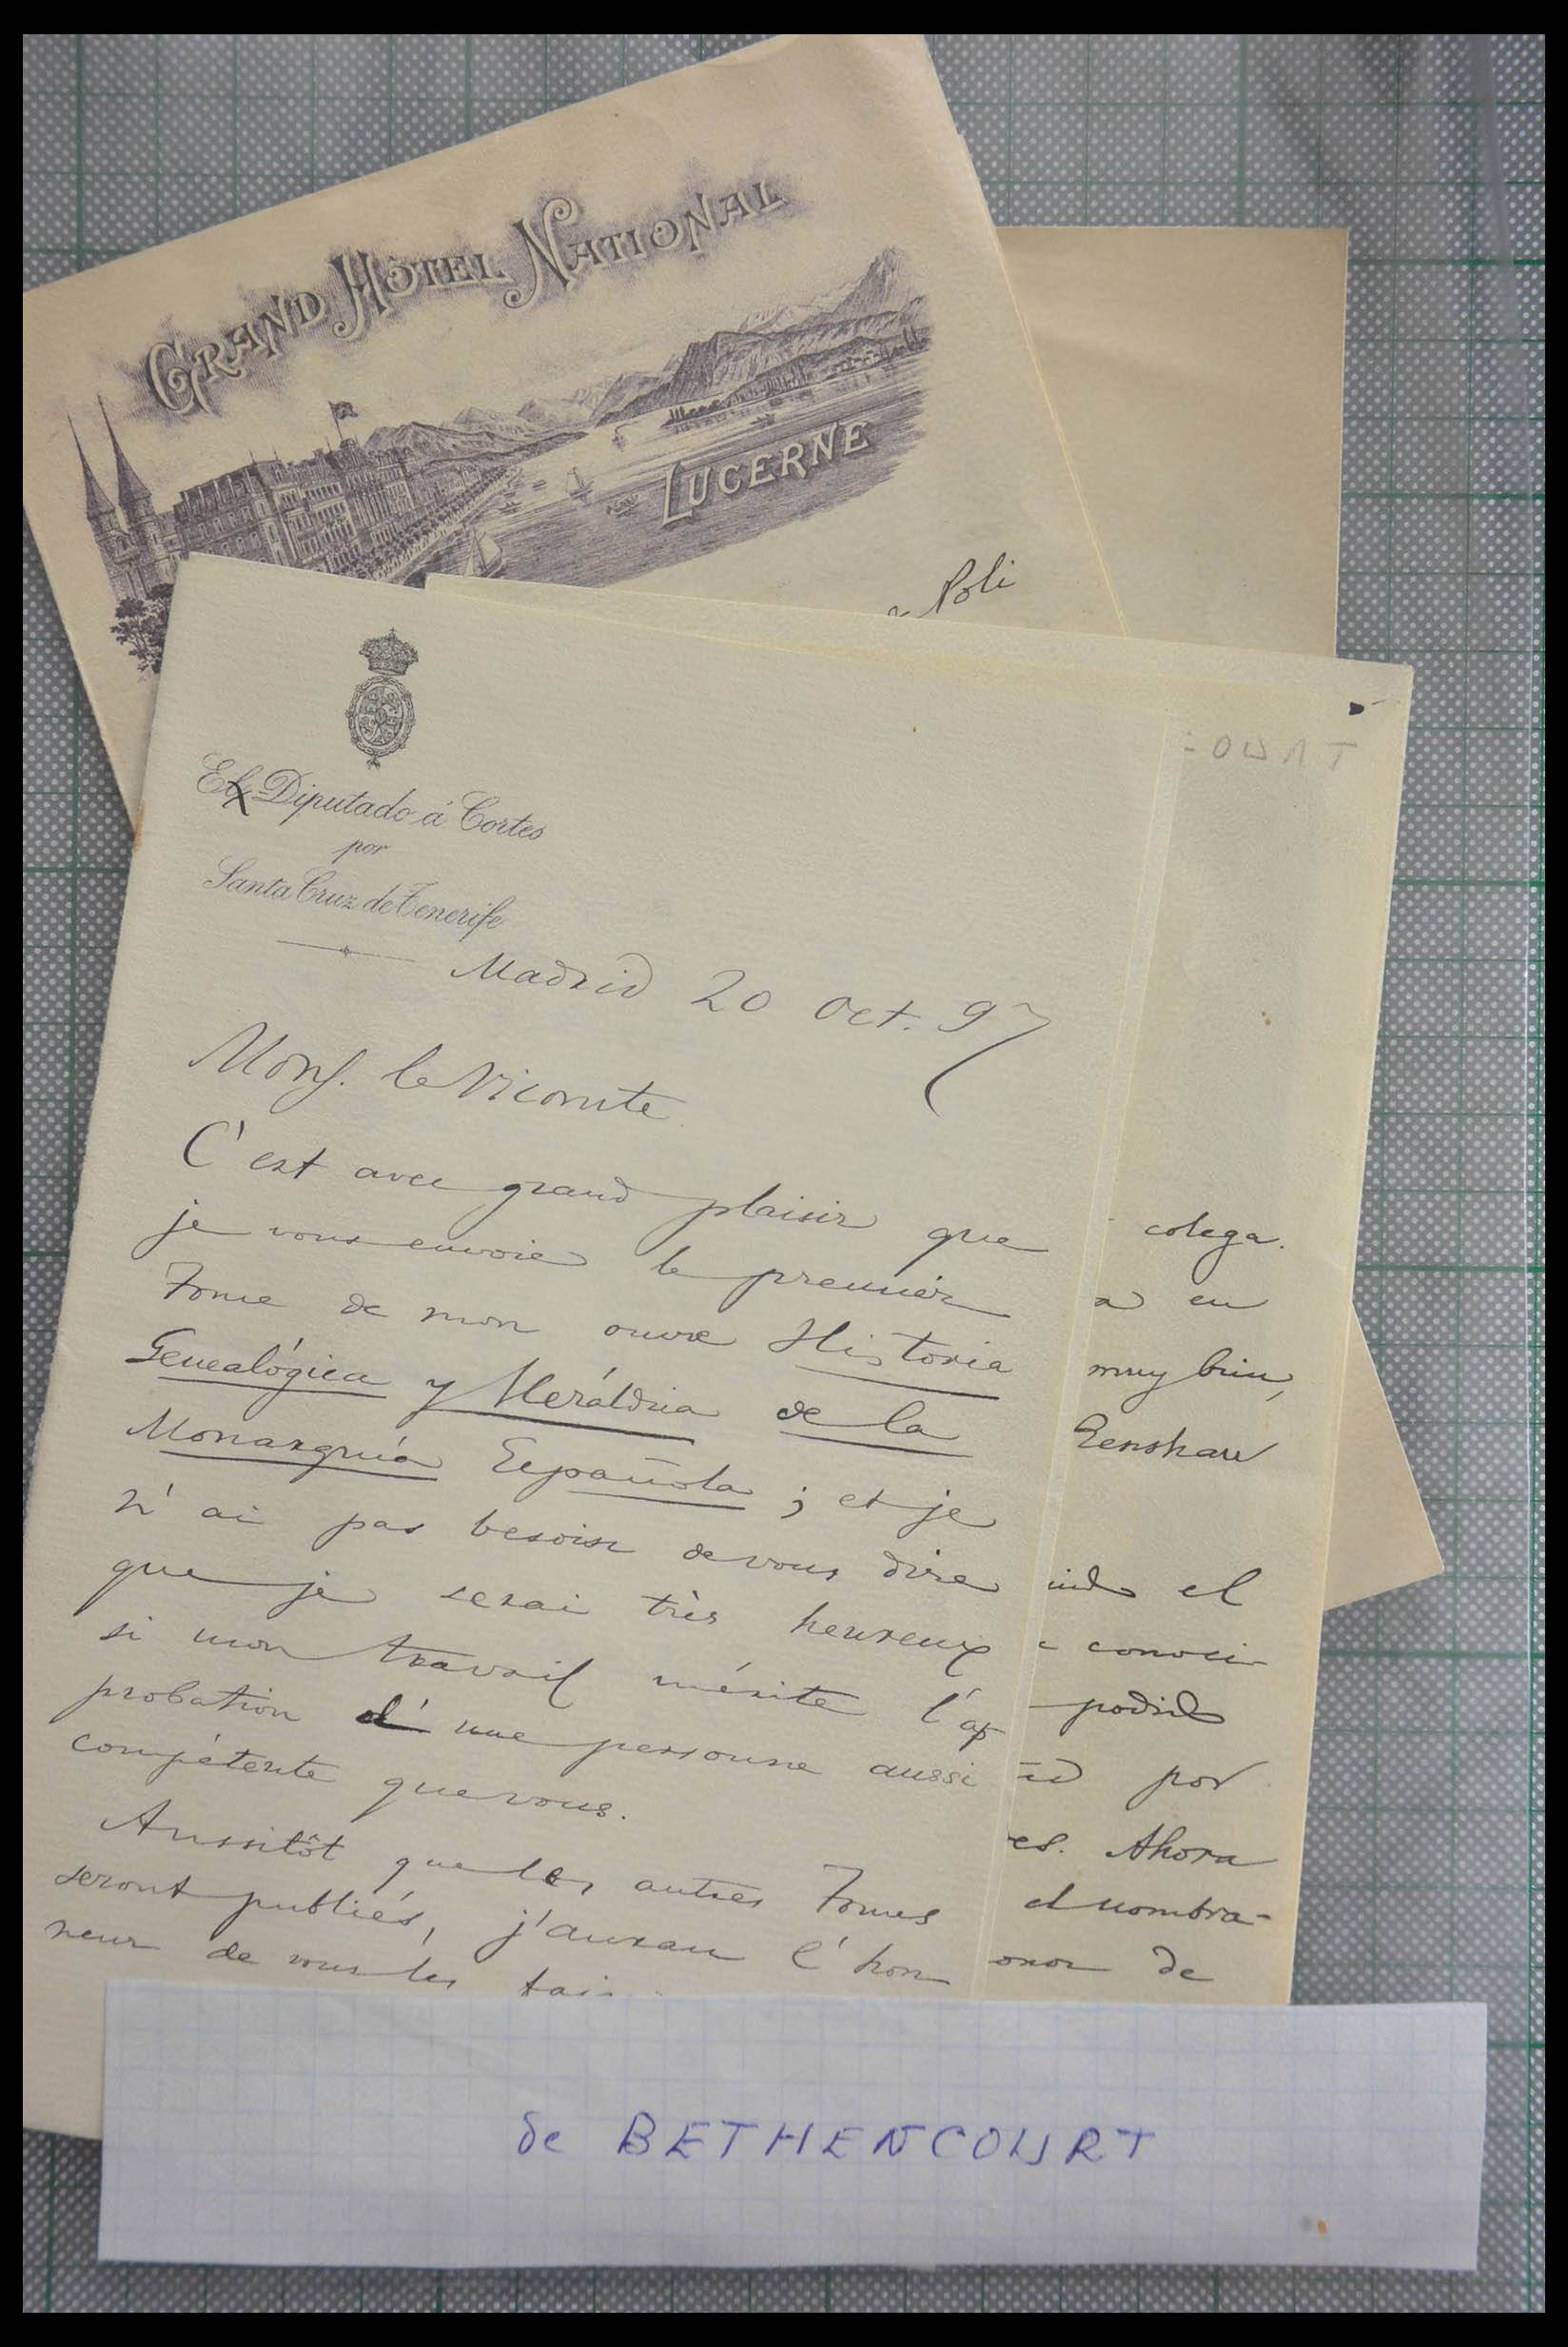 GRAND HÔTEL NATIONAL
LUCERNE
Poli
El Diputado á Cortes
por
Santa Cruz de Tenerife
Madrid 20 Oct. 97
Mons. le Vicomte
C'est avec grand plaisir que
je vous envoie le premier
Tome de mon ouvre Historia
Genealógica y Heráldica de la
Monarquía Española ; et je
n'ai pas besoin de vous dire
que je serai très heureux
si mon travail mérite l'ap
probation d'une personne aussi
compétente que vous.
Aussitôt que les autres Tomes
seront publiés, j'aurau l'hon
neur de vous les
OURT
colega.
en
muy bien,
el
conocer
por
Ahora
el nombra-
de
de BETHENCOURT